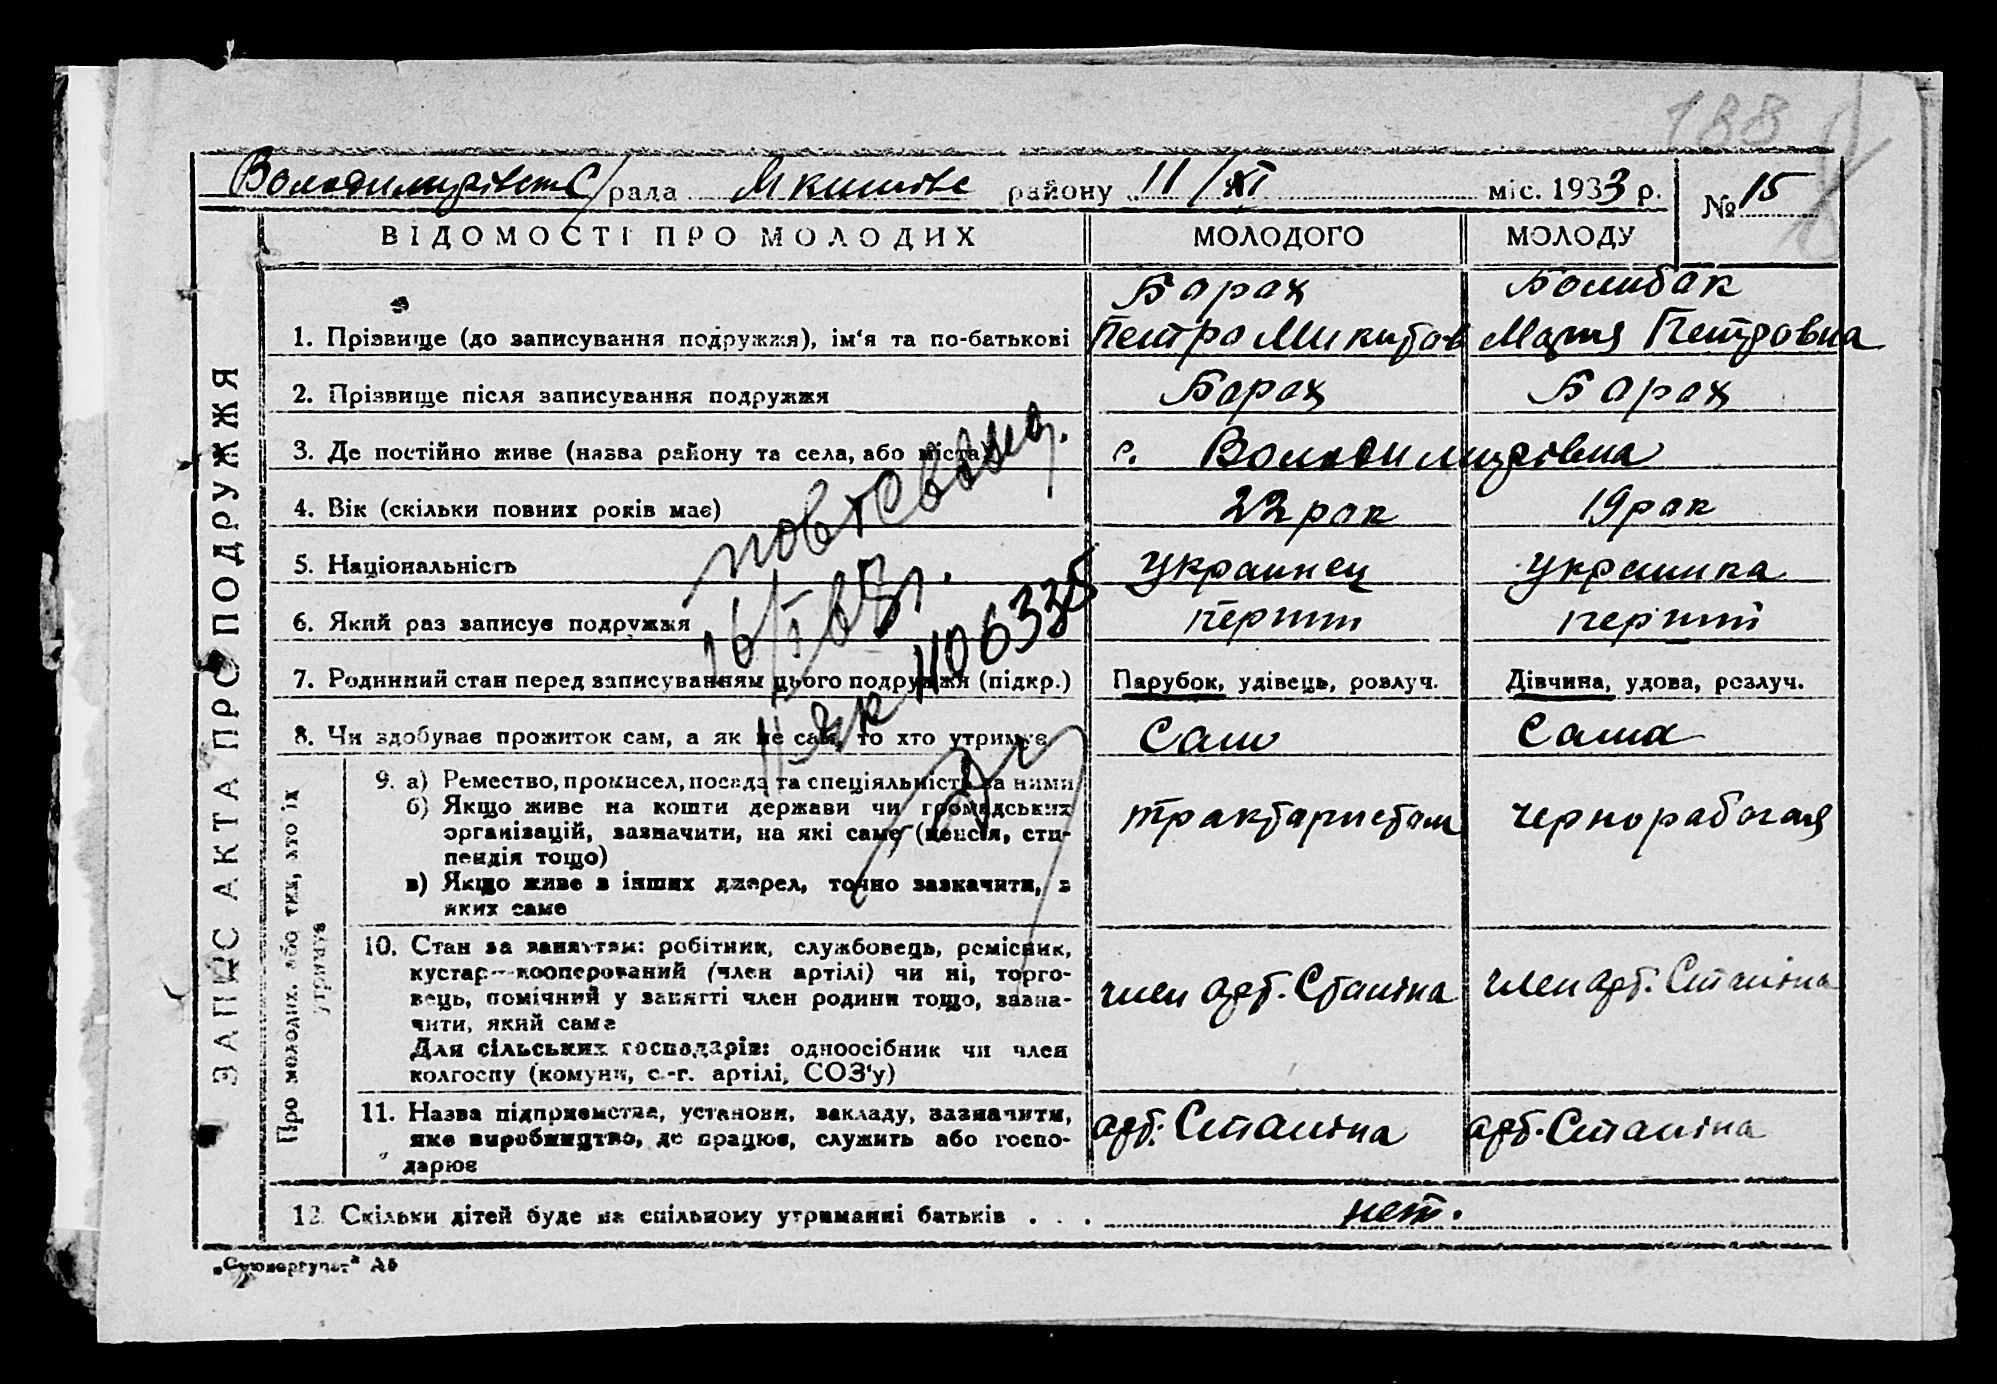 188
Володимирівськ С/рада районy 11/XI міс. 1933 р. № 15
ВІДОМОСТІ ПРО МОЛОДИХ МОЛОДОГО МОЛОДУ
ЗАПИС АКТА ПРО ПОДРУЖЖЯ
1. Прізвище (до записування подружжя), ім'я та по-батькові
Барах
Петро Микитов
Болибак
Мария Петровна
2. Прізвище після записування подружжя Барах Барах
3. Де постійно живе (назва району та села, або міста) с. Володимирівка
4. Вік (скільки повних років має) 22 рок 19 рок
5. Національність украинец украинка
6. Який раз записує подружжя перший перший
7. Родинний стан перед записуванням цього подружжя (підкр.) Парубок, удівець, розлуч. Дівчина, удова, розлуч.
8. Чи здобуває прожиток сам, а як не сам, то хто утримує Сам Сама
Про молодих, або тих, хто їх утримує
9. а) Ремество, промисел, посада та спеціяльність за ними
б) Якщо живе на кошти держави чи громадських
організацій, зазначити, на які саме (пенсія, сти-
пендія тощо)
в) Якщо живе з інших джерел, точно зазначити, з
яких саме
трактаристом чернорабочая
10. Стан за заняттям: робітник, службовець, ремісник,
кустар—кооперований (член артілі) чи ні, торго-
вець, помічний у занятті член родини тощо, зазна-
чити, який саме
Для сільських господарів: одноосібник чи член
колгоспу (комуни, с.-г. артілі, СОЗ'у)
член арт. Сталіна член арт. Сталіна
11. Назва підприємства, установи, закладу, зазначити,
яке виробництво, де працює, служить або госпо-
дарює
арт. Сталіна арт. Сталіна
12. Скільки дітей буде на спільному утриманні батьків . . . нет.
повт. свід
16/I 63 г.
II ЯР 1106335
„Союзоргучет" А5